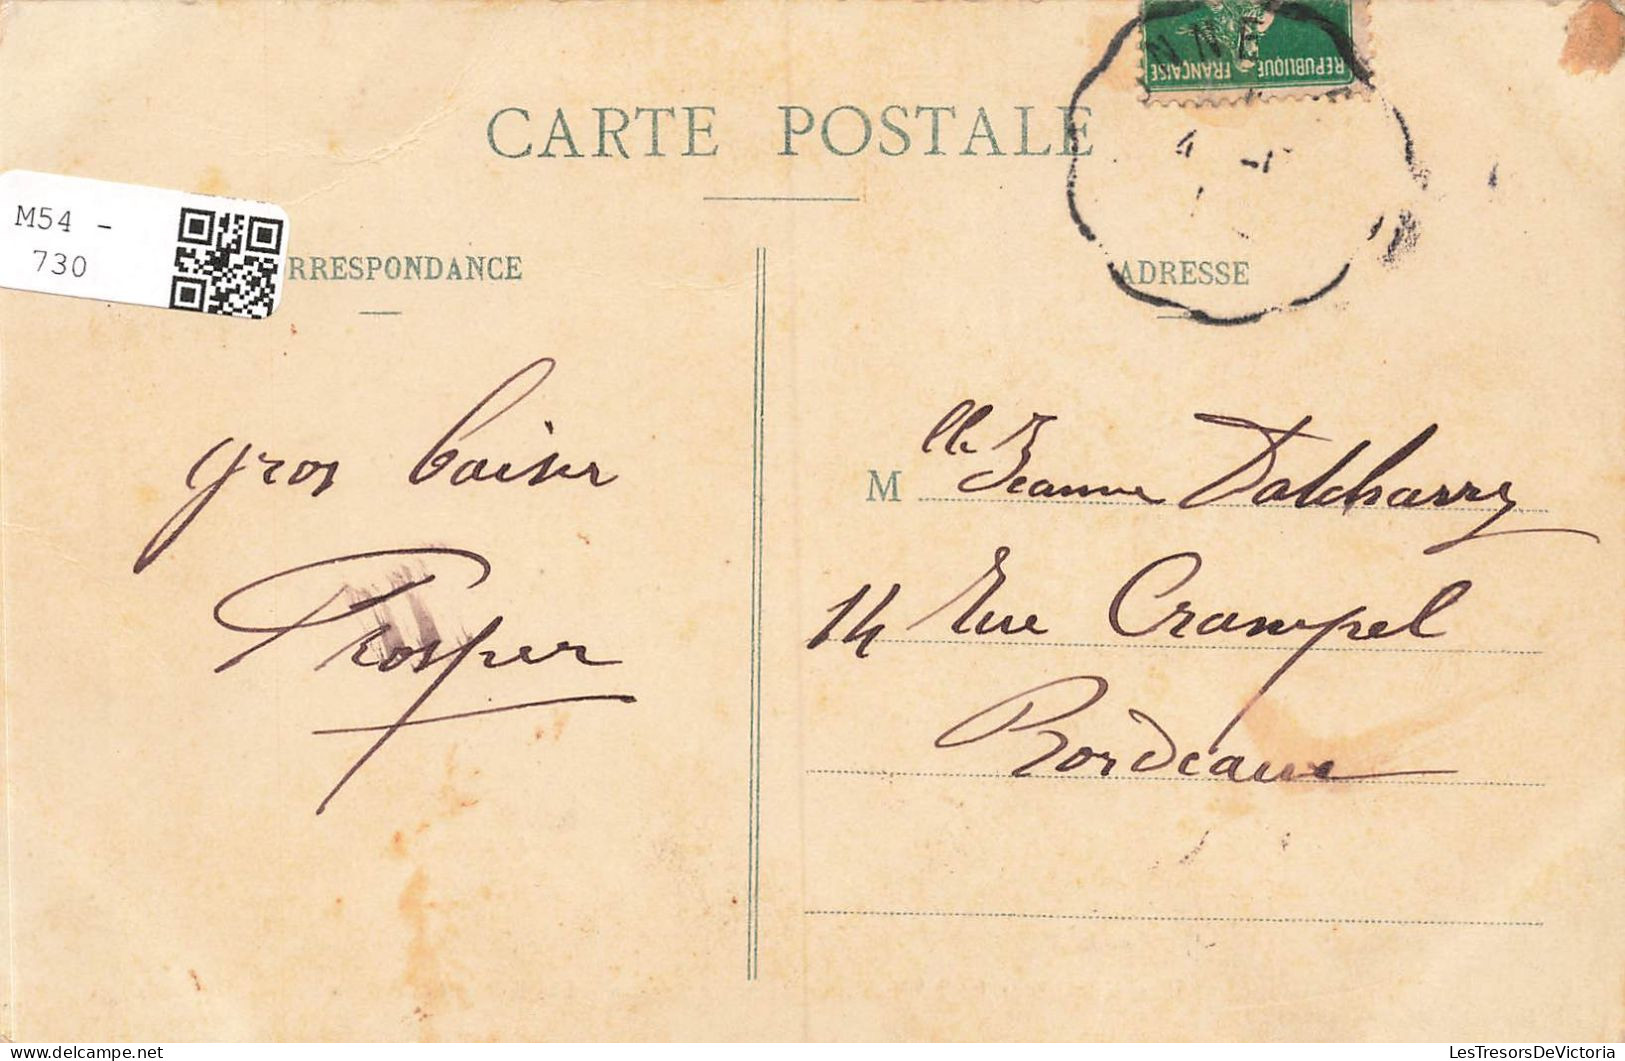 CARTE POSTALE
M54 -
730
RRESPONDANCE
ADRESSE
NNE
REPUBLIQUE
FRANÇAISE
4
gros baiser
Prosper
Mlle Jeanne Dalcharry
14 Rue Crampel
Bordeaux
LesTresorsDeVictoria